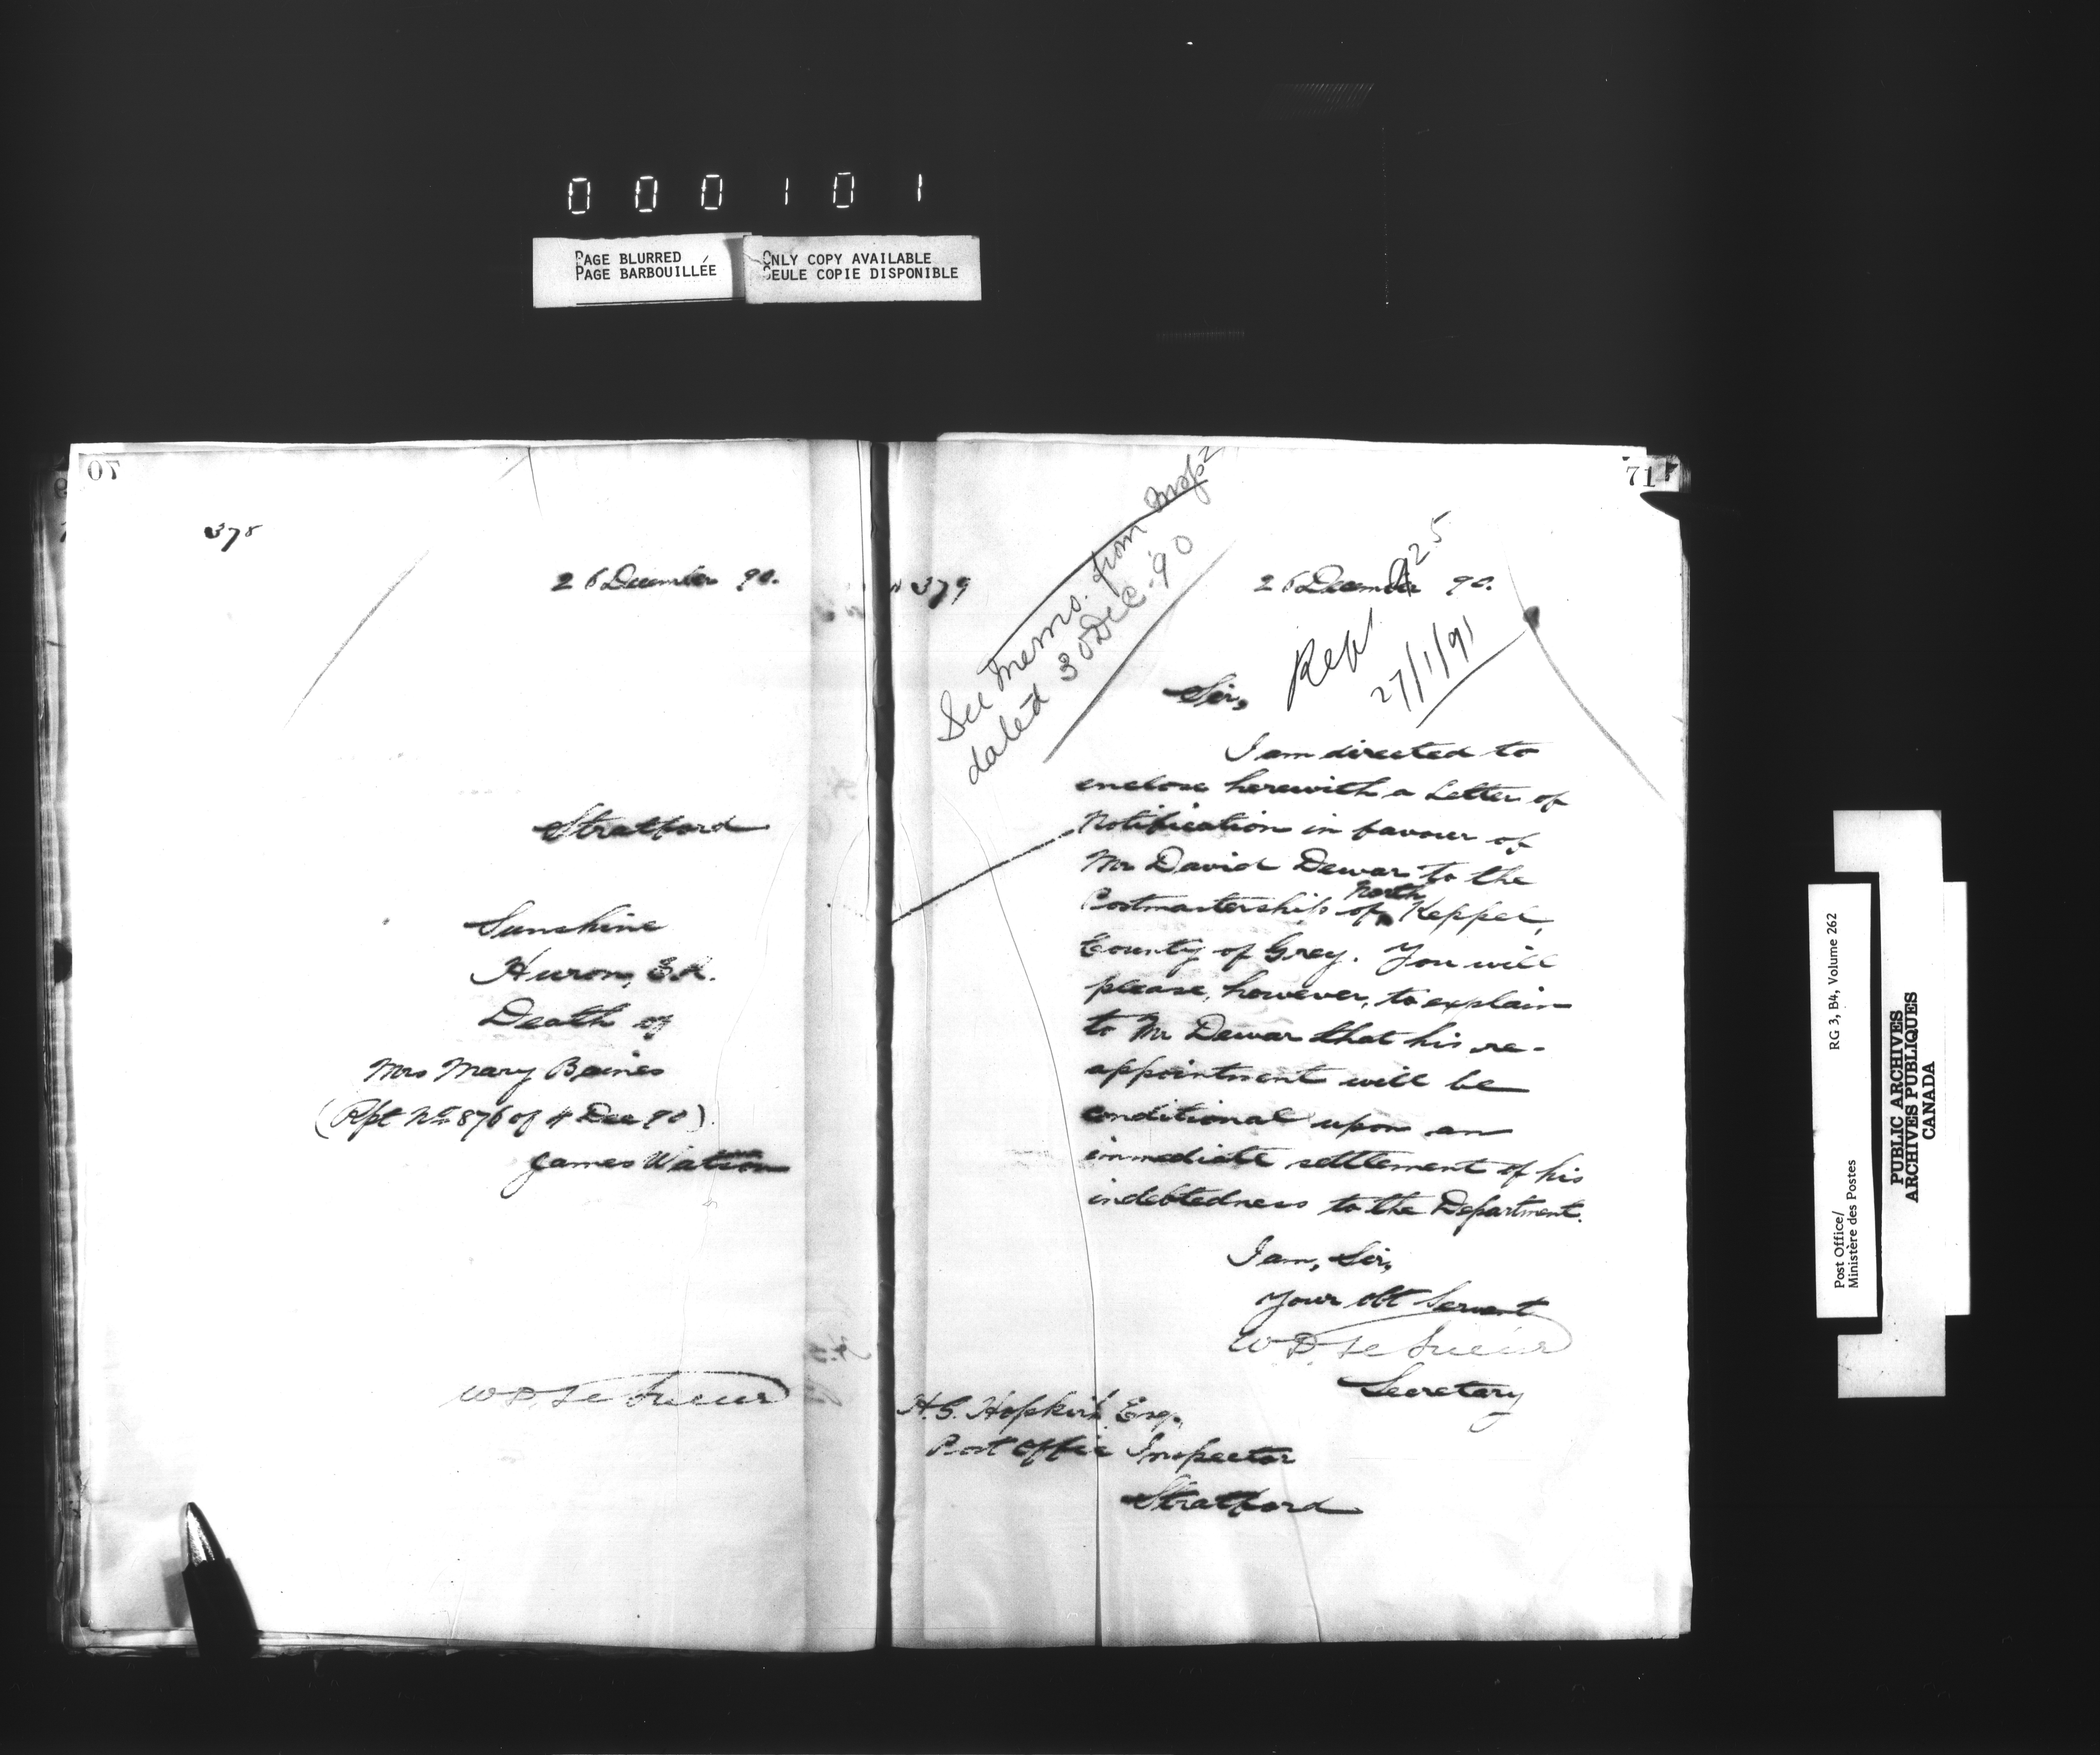 000101
PAGE BLURRED
PAGE BARBOUILLÉE
ONLY COPY AVAILABLE
SEULE COPIE DISPONIBLE
70
378
26 December 90.
Stratford
Sunshine
Huron, E.R.
Death of
Mrs Mary Baines
(Rpt No. 876 of 4 Dec 90).
James Watson
W D. Le Sueur
71
379
See memo. from Inspr
dated 30 Dec. '90
26 December 90.
925
Rept
27/1/91
Sir,
I am directed to
enclose herewith a Letter of
Notification in favour of
Mr David Dewar to the
Postmastership of North Keppel,
County of Grey. You will
please, however, to explain
to Mr Dewar that his re-
appointment will be
conditional upon an
immediate settlement of his
indebtedness to the Department.
I am, Sir,
Your obt Servant
W D. Le Sueur
Secretary
H.G. Hopkirk Esq.
Post Office Inspector
Stratford
Post Office/
Ministère des Postes
RG 3, B4, Volume 262
PUBLIC ARCHIVES
ARCHIVES PUBLIQUES
CANADA